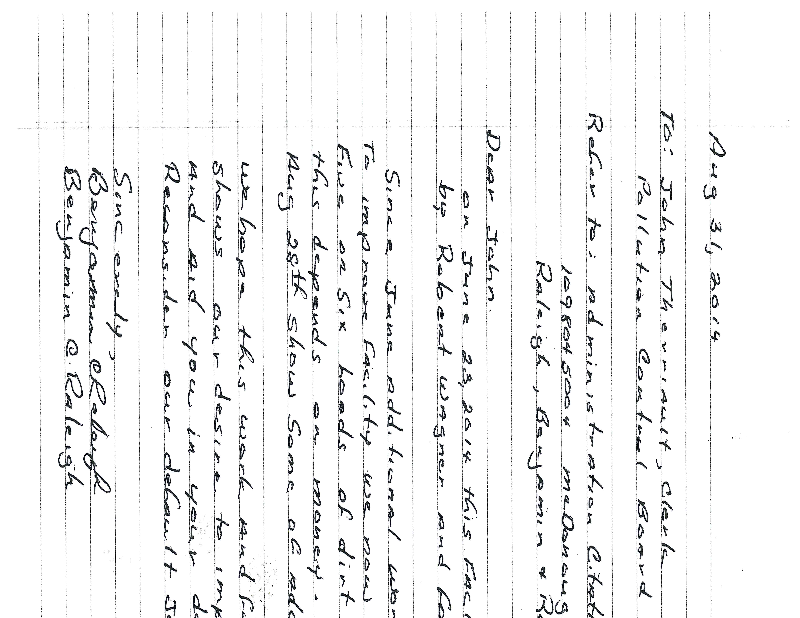 Aug 31, 2014
To: John Therriault, Clerk
Pollution Control Board
Refer to: Administration Citat
1098045004 McDonoug
Raleigh, Benjamin & Ro
Dear John.
on June 23, 2014 this Faci
by Robert Wagner and fo
Since June additional wor
To improve Facility we now
Five or Six loads of dirt
this depends on money.
Aug 28th Show Some of add
we hope this work and fu
shows our desire to imp
and aid you in your de
Reconsider our default Ju
Sincerely,
Benjamin C Raleigh
Benjamin C. Raleigh